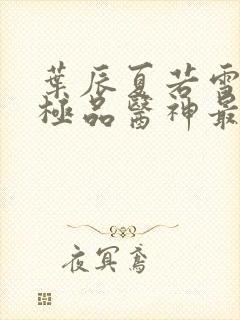 葉辰夏若雪
極品醫神最
夜冥鳶